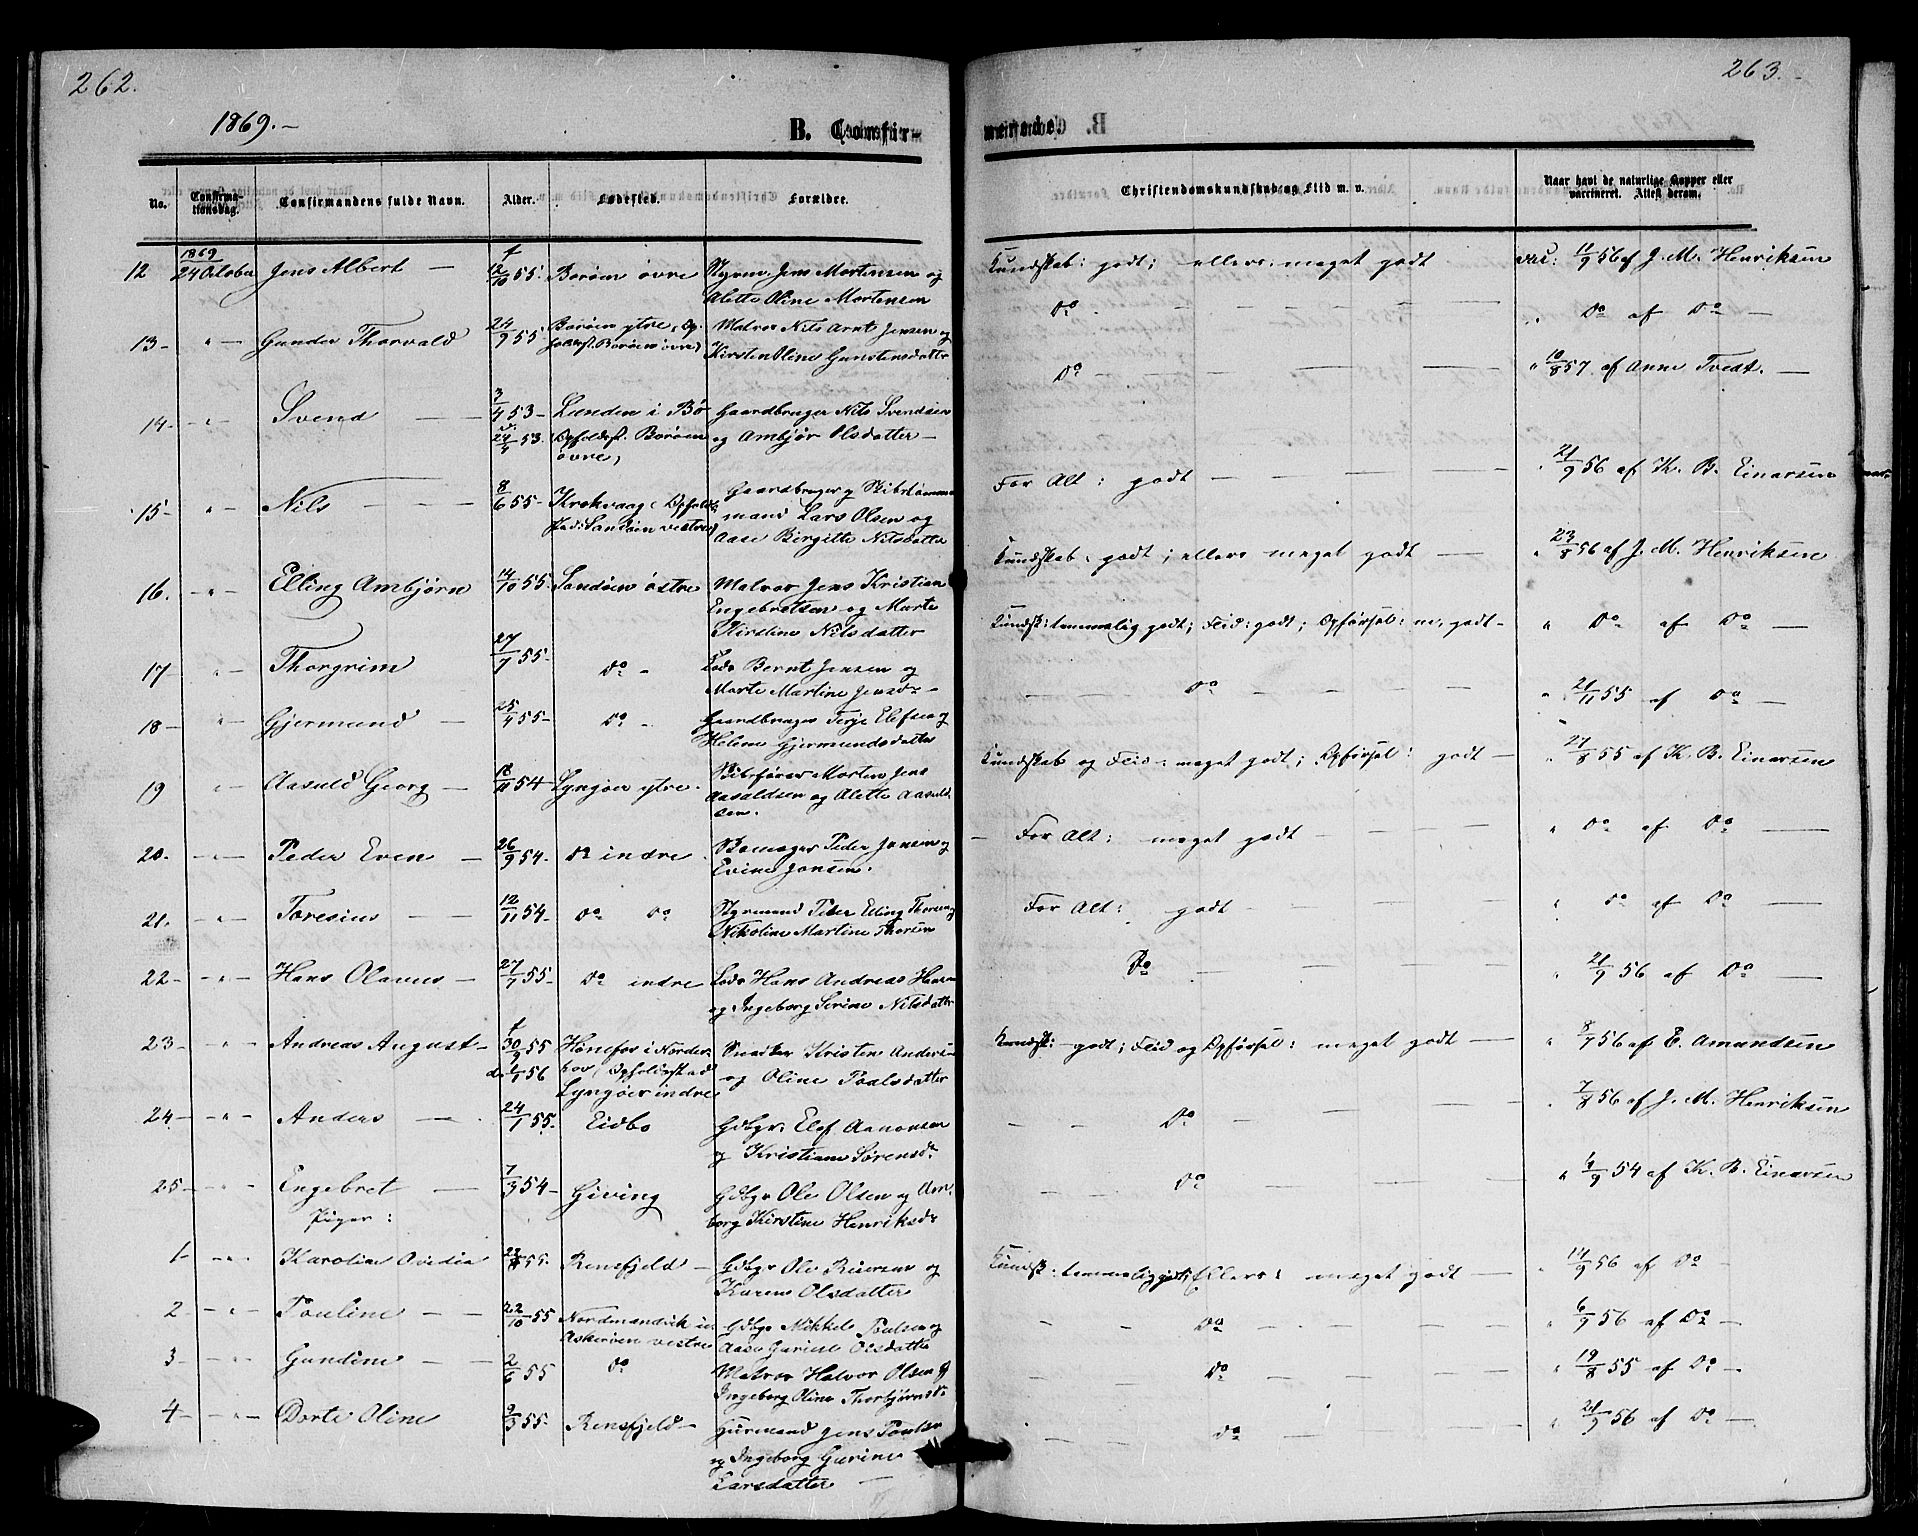 262.
1869.-
B. Confir-
No. Confirma-tionsdag. Confirmandens fulde Navn. Alder. Fødested. Forældre.
12 1869 24 Octobr Jens Albert — f 12/10 55. Borøen øvre Styrm. Jens Mortensen og
Alette Oline Mortensen
13- " — Gunder Thorvald 24/9 55 Borøen ytre, Op- Matros Nils Arnt Jensen og
holdsst. Borøen øvre) Kirsten Oline Gunstensdatter
14- -"- Svend — — 3/4 53- Landen i Bø Gaardbruger Nils Svendsen
d. 24/4 53. (Opholdsst. Borøen og Ambjør Olsdatter —
øvre)
15- " — Nils — — — 8/6 55- Krokvaag (Opholds- Gaardbruger og Skibstømmer-
sted: Sandøen vestre) mand Lars Olsen og
Aase Birgitte Nilsdatter
16. -"- Elling Ambjørn 14/10 55. Sandøen østre Matros Jens Kristian
Engebretsen og Marte
Kirstine Nilsdatter
17- "- Thorgrim 27/7 55- Do - Lods Bernt Jensen og
Marte Martine Jensdr -
18- "- Gjermund — 25/4 55- Do - Gaardbruger Terje Elefsen og
Helene Gjermundsdatter
19 "- Aasuld Georg — 54- Lyngøer ytre. Skibsfører Morten Jens
Aasuldsen og Alette Aasuld-
sen.
20. -"- Peder Even — 26/9 54- Do indre. Peder Jensen og
Evine Jonsen.
21. -"- Toresius — — 12/11 54- Do Do Styrmand Peder Elling Thorsen og
Nikoline Martine Thorsen
22- -"- Hans Olaves — 27/7 55- Do indre Lods Hans Andreas Hansen
og Ingeborg Serine Nilsdatter
23- - " Andreas August — f 30/9 55 Hønefos i Norder- Snedker Kristen Anders-
56 hov, Opholdssted og Oline Poalsdatter
Lyngøer indre
24- " " Anders — . 24/1 55. Eidbo Gdbgr. Elef Aanonsen
og Kristiane Sørensdr.
25- " " Engebret — 7/3 54- Giving Gdbgr Ole Olsen og Am-
Piger: borg Kirstine Henriksdr
1- -"- Karoline Ovidia 55. Rensfjeld — Gdbgr Ole Reiersen og
Karen Olsdatter
2 -"- Pouline — — 22/10 55 Nordmandvik in Gdbgr Mikkel Poulsen og
Askerøen vestre Aase Gurine Olsdatter
3 - "- Gundine — — 2/6 55 Do Matros Halvor Olsen og
Ingeborg Oline Thorbjørnsdr
4- - "- Dorte Oline 2/3 55. Rensfjeld — Huusmand Jens Poulsen
og Ingeborg Gurine
Larsdatter —
263.-
merede B.
Christendomskundskab og Flid m. v. Naar havt de naturlige Kopper eller
vaccineret. Attest derom.
Kundskab: godt; ellers: meget godt vac: 11/9 56 af J. M. Henriksen
Do. — — — — " Do af Do —
Do — — — — — " 10/8 57 af Anne Tvedt. —
For Alt: godt — — — — — " 21/9 56 af K. B. Einarsen
Kundskab: godt; ellers meget godt — " 23/8 56 af J. M. Henriksen
Kundsk: temmelig godt; Flid: godt; Opførsel: m. godt- " Do af Do —
— — — Do — — — — " 21/11 55 af Do —
Kundskab og Flid: meget godt; Opførsel: godt — " 27/8 55 af K. B. Einarsen
- For Alt: meget godt — — — — " Do af Do —
For Alt: godt — — — — " Do af Do —
Do — — — — " 21/9 56 af Do —
Kundsk: godt; Flid og Opførsel: meget godt — " 8/7 56 af E. Amundsen
— — Do — — — — " 7/8 56 af J. M. Henriksen
— — Do — — — — " 4/9 54 af K. B. Einarsen
Kundsk: temmelig godt; Ellers: meget godt — " 14/9 56 af Do -
— — — Do — — — — " 6/9 56 af Do —
— — — Do — — — — " 19/8 55 af Do —
— — — Do — — — — " 21/9 56 af Do —